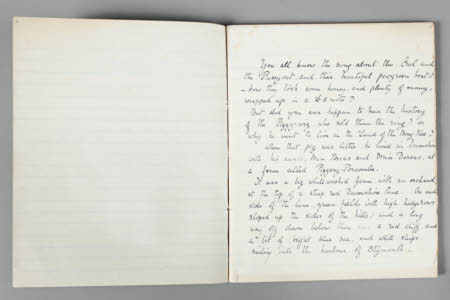 You all know the song about the Owl and
the Pussy-cat and their beautiful peagreen boat?
— how they took some honey and plenty of money,
wrapped up in a £5 note?
But did you ever happen to hear the history
of the Piggy-wig who sold them the ring? or
why he went to live in the Land of the Bong tree?
When that pig was little he lived in Devonshire
with his aunts, Miss Porcas and Miss Dorcas, at
a farm called Piggery-Porcombe.
It was a big white-washed farm with an orchard,
at the top of a steep red Devonshire lane. On each
side of the lane, green fields with high hedgerows
sloped up the sides of the hills; and a long
way off down below there was a red cliff and
a bit of bright blue sea, and white ships
sailing into the harbour of Stymouth —